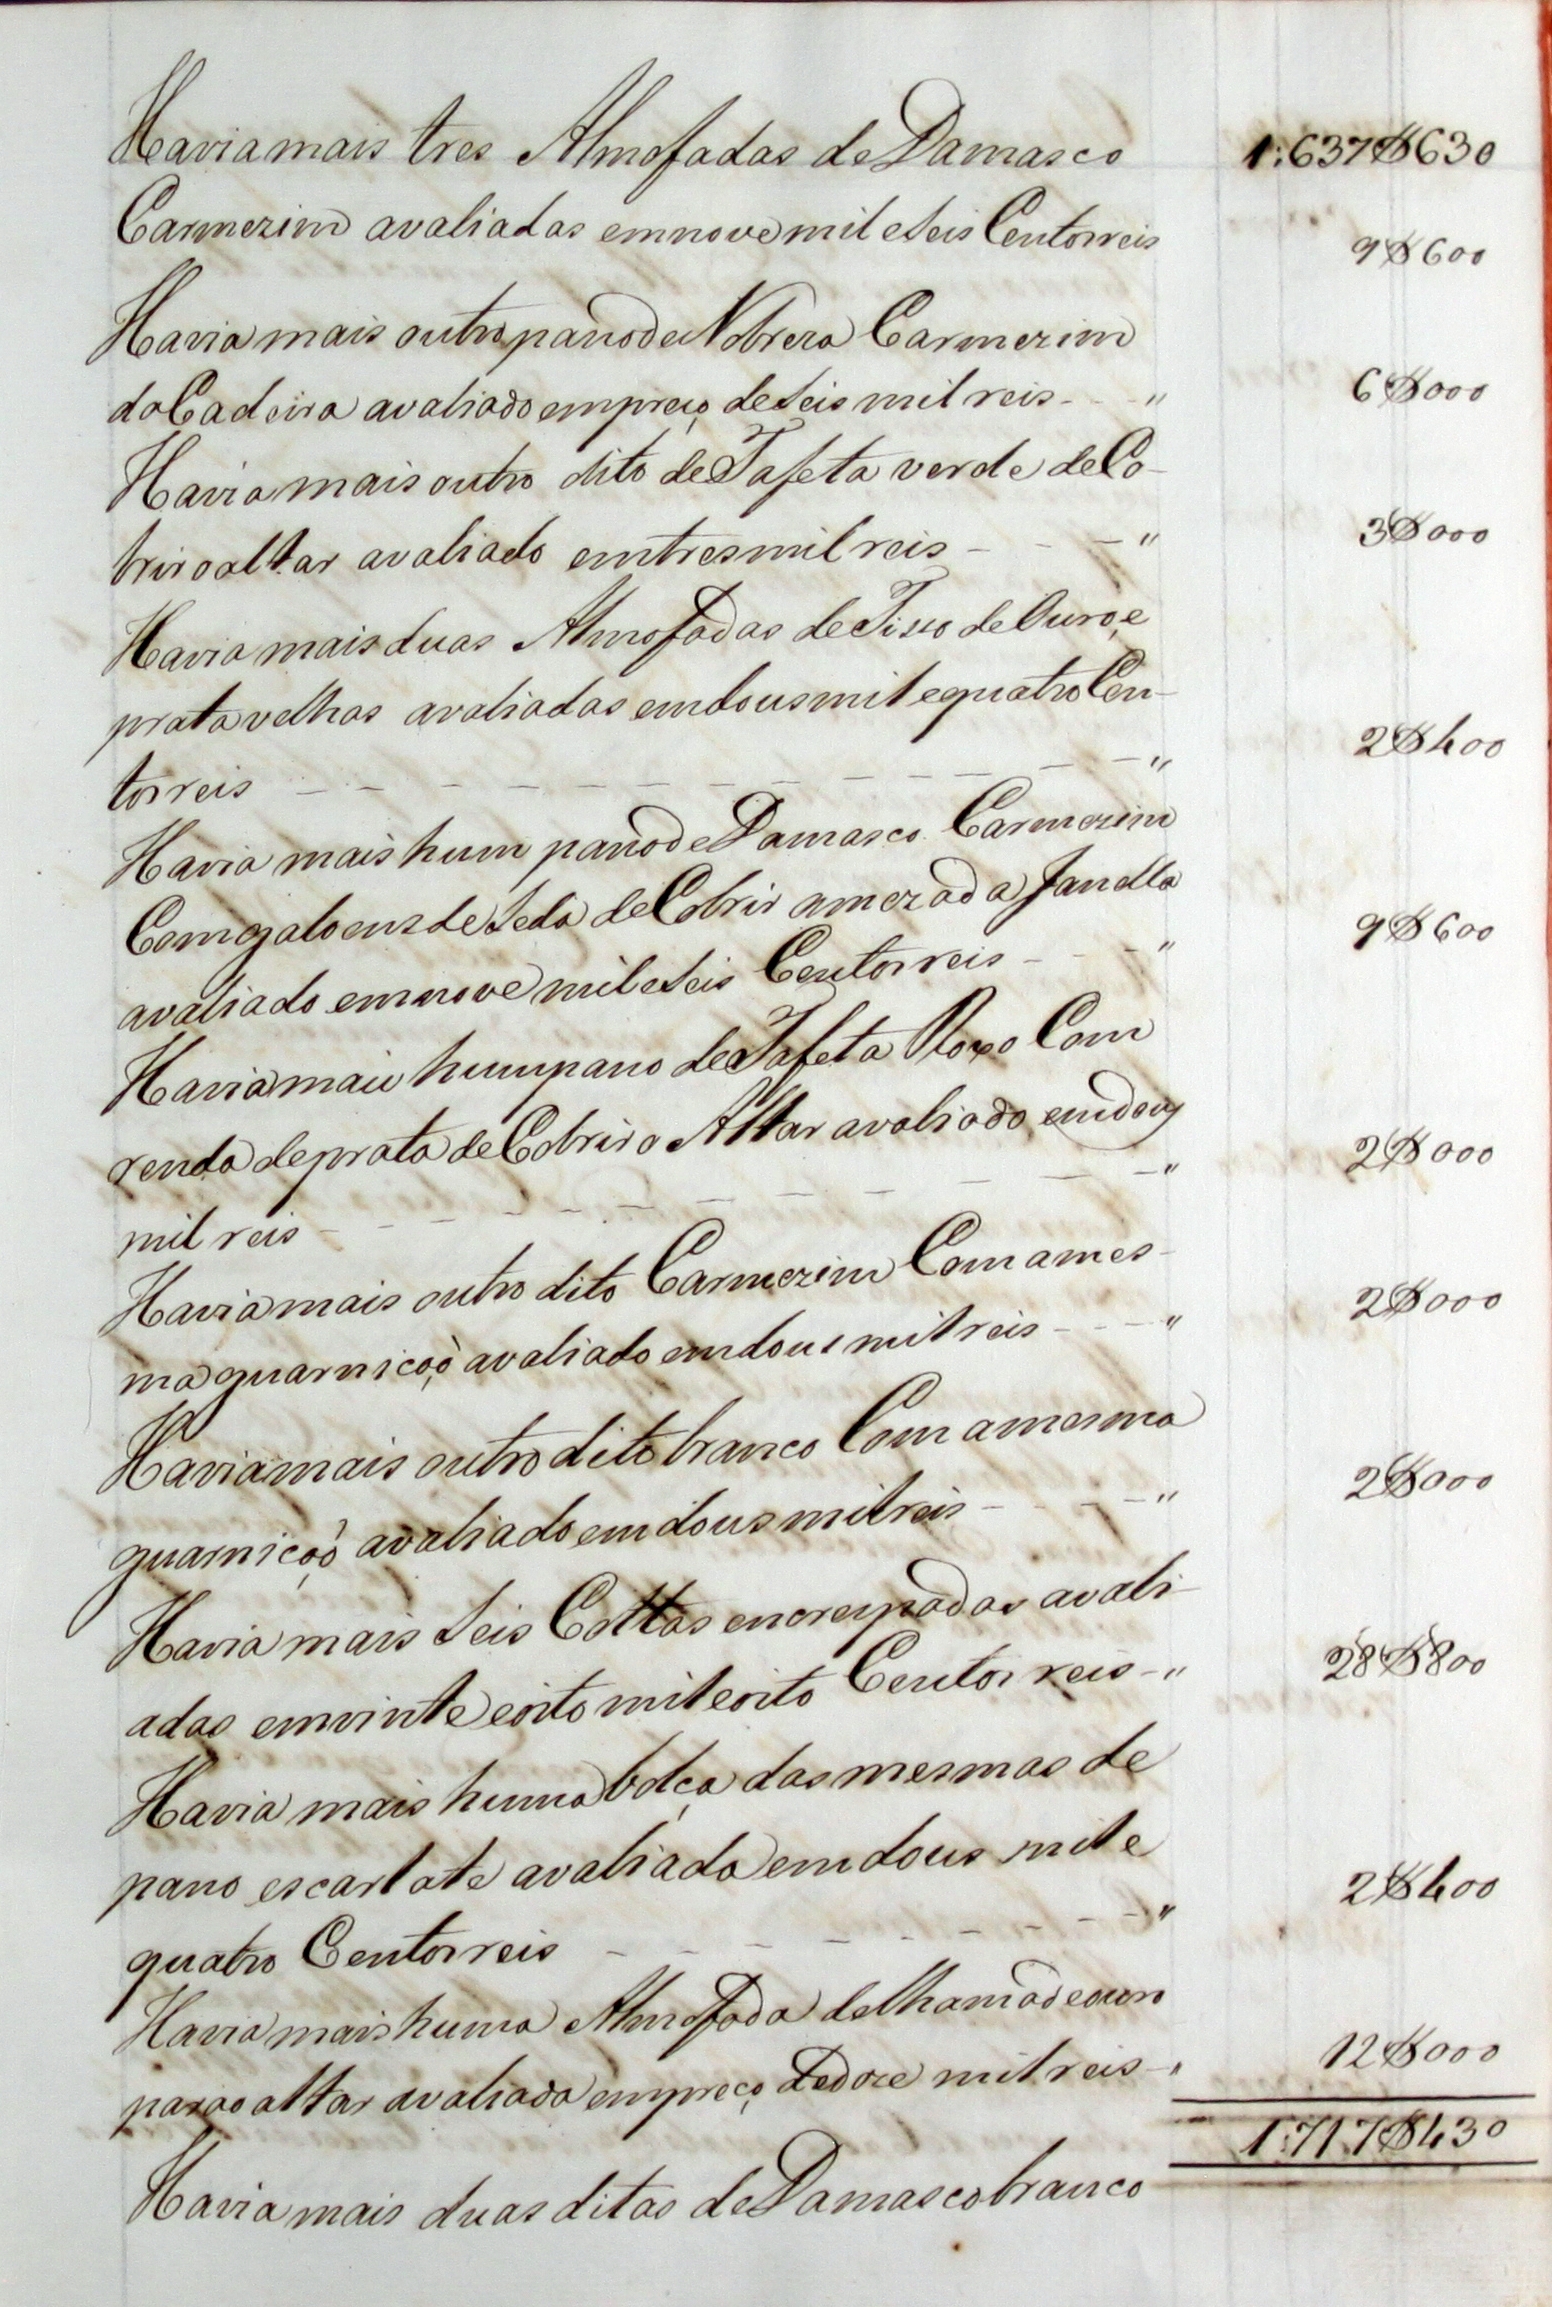 Havia mais tres Almofadas de Damasco 1:637$630
Carmezim avaliadas em nove mil e seis Centos reis 9$600
Havia mais outro pano de Nobreza Carmezim
da Cadeira avaliado em preço de seis mil reis - - " 6$000
Havia mais outro dito de Tafeta verde de Co-
brir o altar avaliado em tres mil reis - - - " 3$000
Havia mais duas Almofadas de Tisso de Ouro, e
prata velhas avaliadas em dous mil e quatro Cen-
tos reis - - - - - - - - - - - " 2$400
Havia mais hum pano de Damasco Carmezim
Com galoens de seda de Cobrir a meza da Janella
avaliado em nove mil e seis Centos reis - - - " 9$600
Havia mais hum pano de Tafeta Roxo Com
renda de prata de Cobrir o Altar avaliado em dous
mil reis - - - - - - - - - - - " 2$000
Havia mais outro dito Carmezim Com a mes-
ma guarnição avaliado em dous mil reis - - - " 2$000
Havia mais outro dito branco Com a mesma
guarnição avaliado em dous mil reis - - - " 2$000
Havia mais seis Cottas encrespadas avali-
adas em vinte e oito mil e oito Centos reis - " 28$800
Havia mais huma bolça das mesmas de
pano escarlate avaliada em dous mil e
quatro Centos reis - - - - - - - - " 2$400
Havia mais huma Almofada de lhama de ouro
para o altar avaliada em preço de doze mil reis - " 12$000
1:717$430
Havia mais duas ditas de Damasco branco